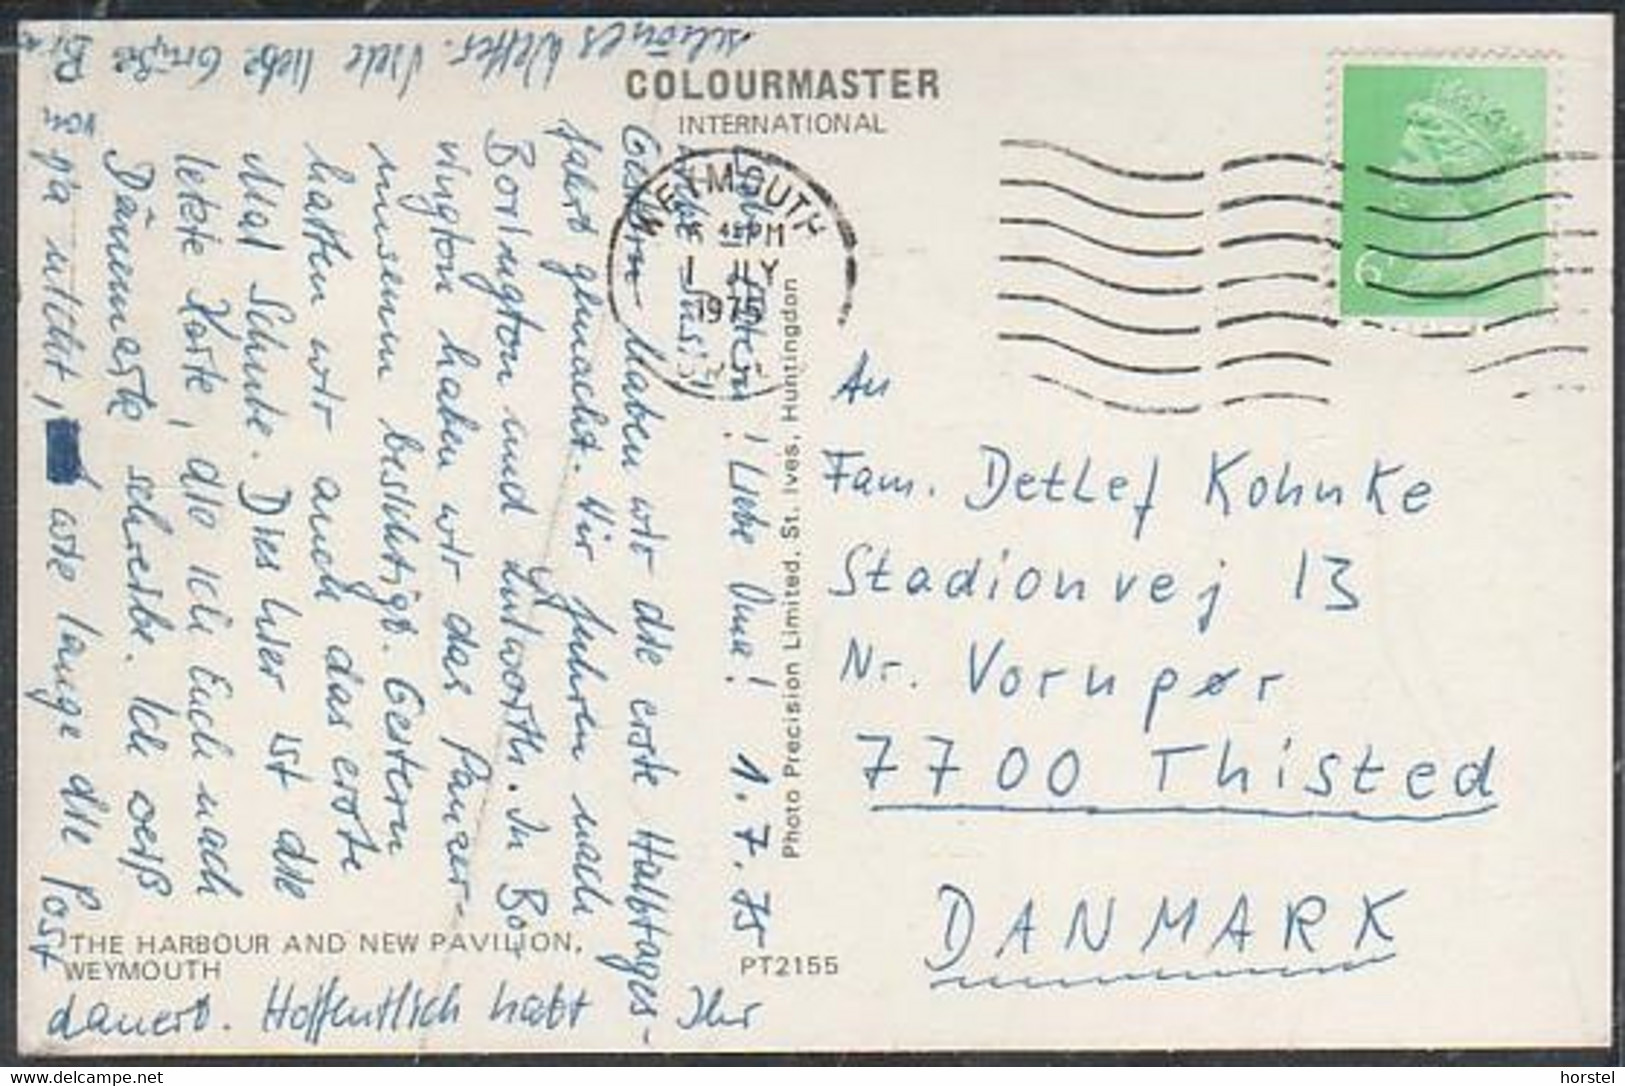 COLOURMASTER
INTERNATIONAL
WEYMOUTH
PM
1 JLY
1975
6P
Photo Precision Limited. St. Ives, Huntingdon
THE HARBOUR AND NEW PAVILION,
WEYMOUTH
PT2155
An
Fam. Detlef Kohnke
Stadionvej 13
Nr. Vorupør
7700 Thisted
DANMARK
! Liebe Oma! 1.7.75
Gestern haben wir die erste Halbtages-
fahrt gemacht. Wir fuhren nach
Bovington und Lulworth. In Bo-
vington haben wir das Panzer-
museum besichtigt. Gestern
hatten wir auch das erste
Mal Schule. Dies hier ist die
letzte Karte, die ich Euch nach
Dänemark schreibe. Ich weiß
ja nicht, wie lange die Post
dauert. Hoffentlich habt Ihr
schönes Wetter. Viele liebe Grüße
von
horstel